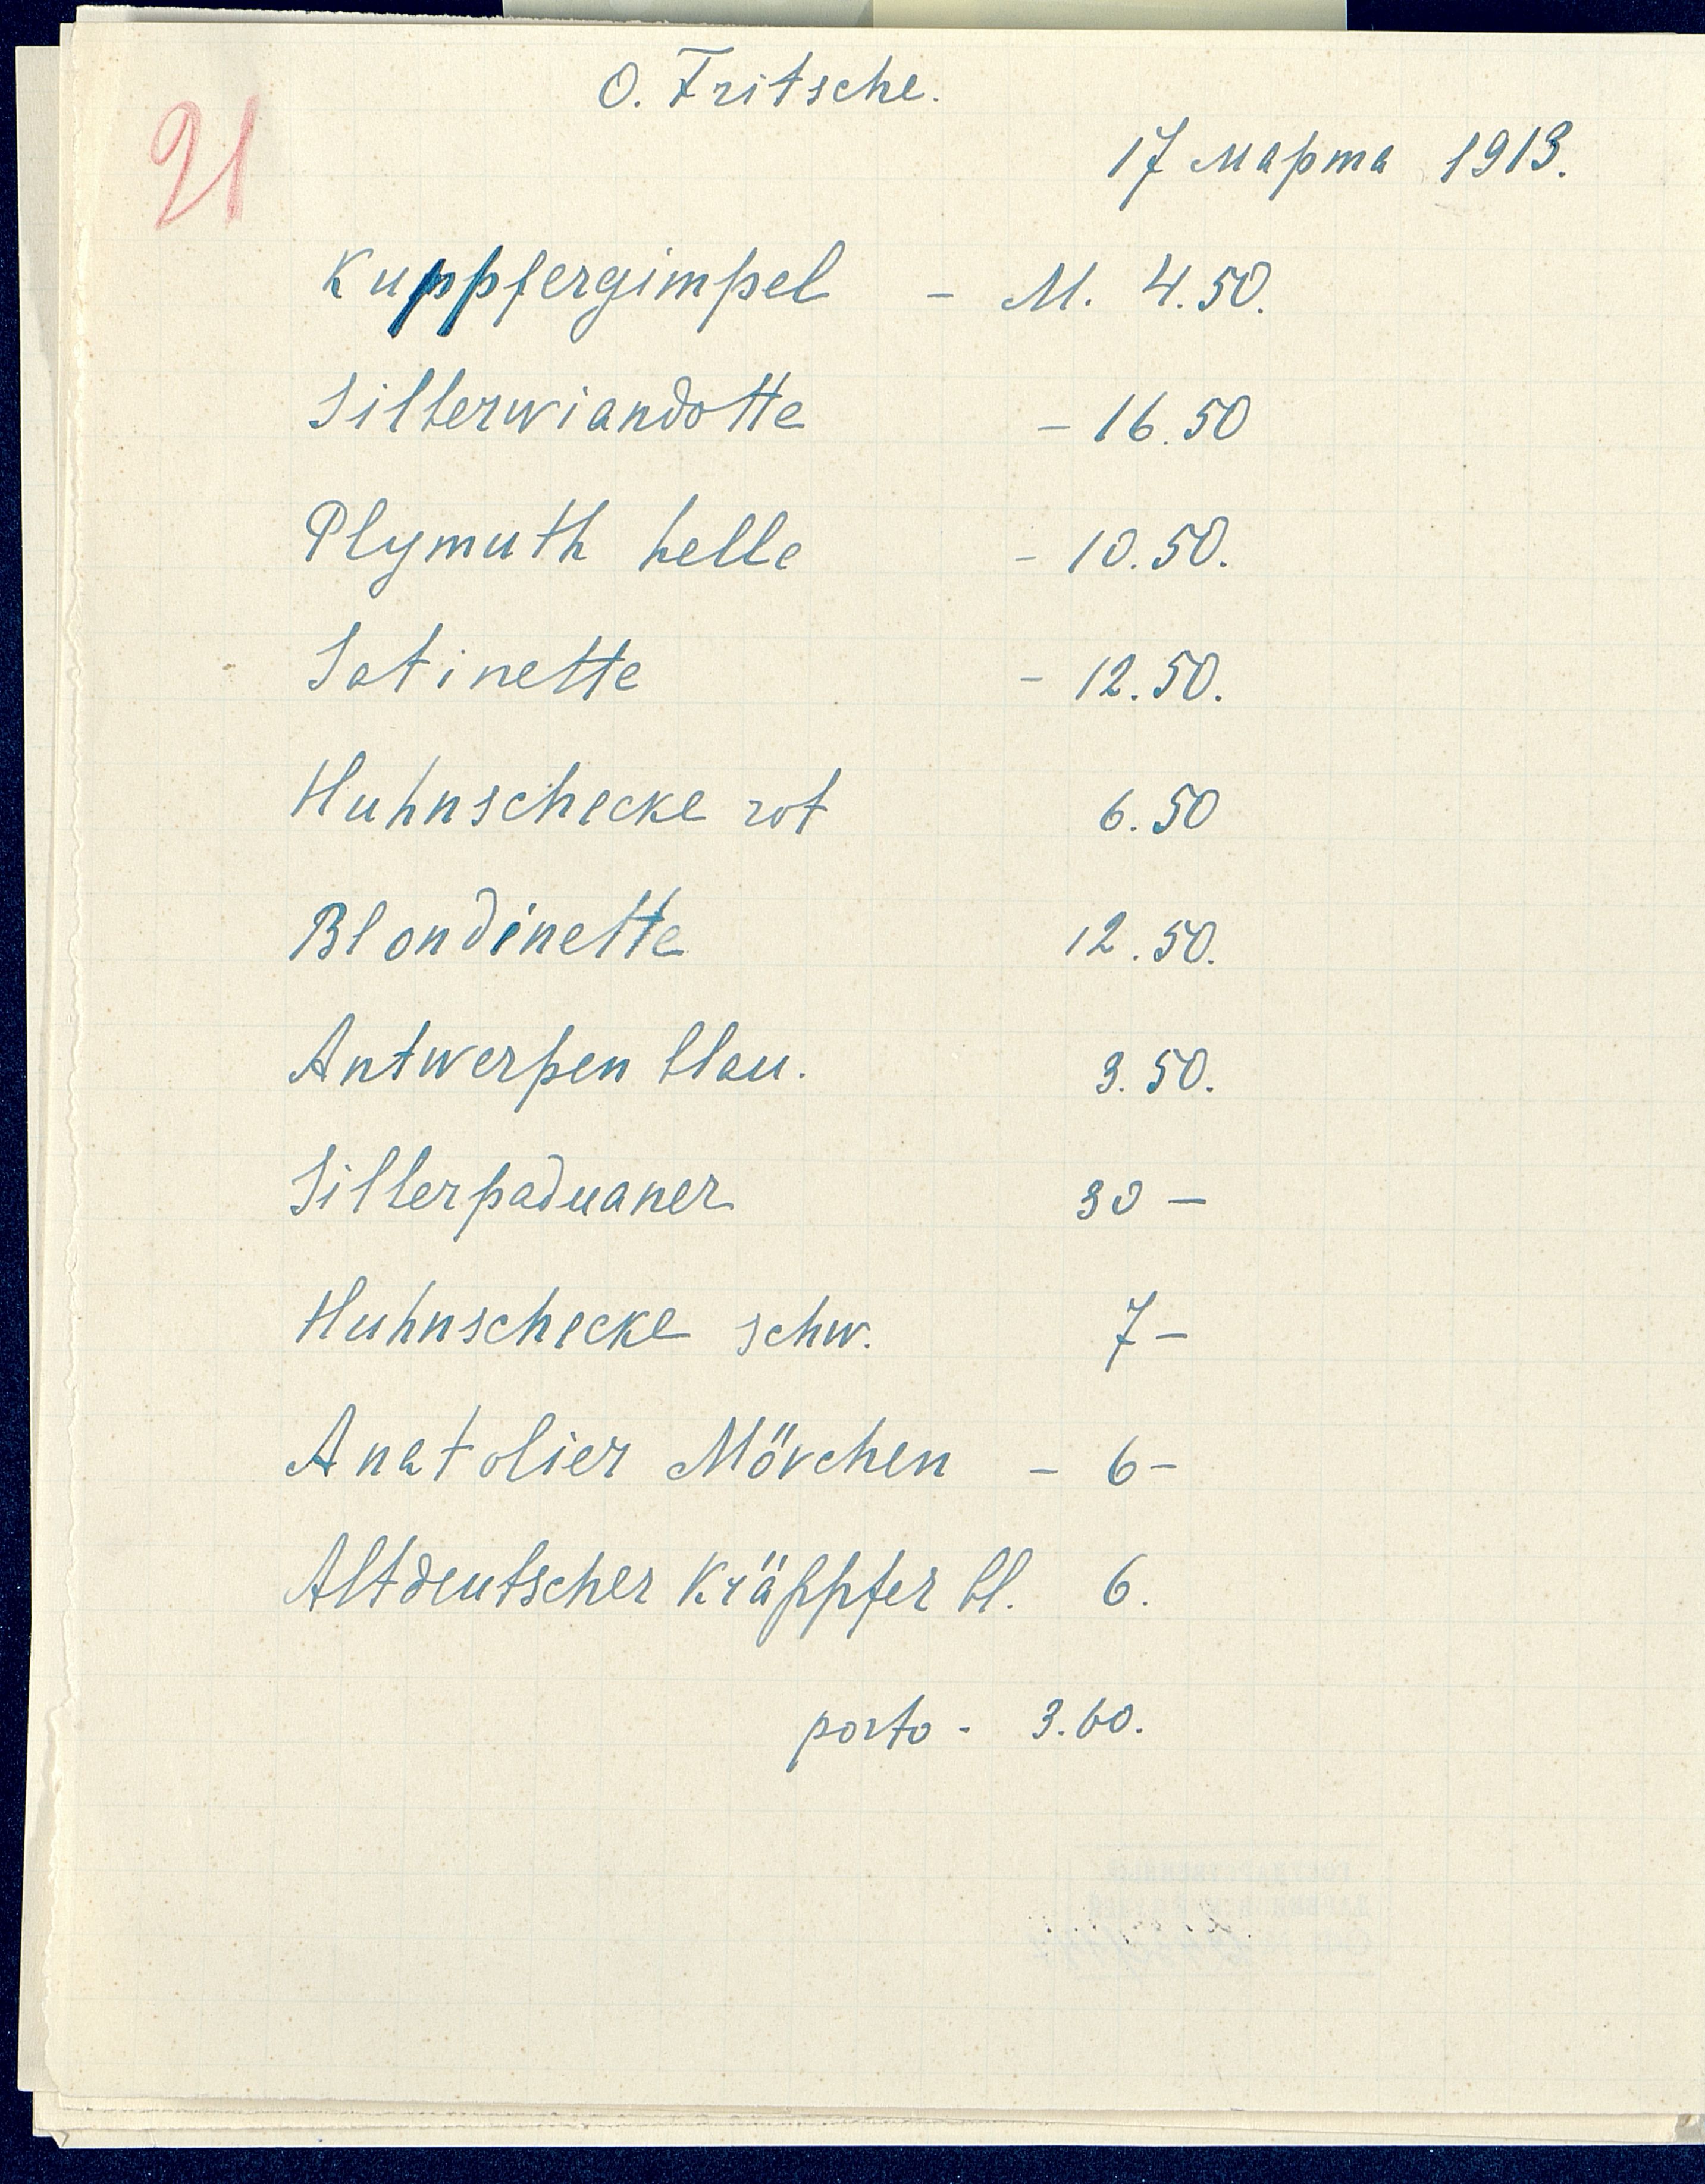 O. Fritsche.
21
17 марта 1913.
Kuppfergimpel - M. 4.50.
Silberwiandotte - 16.50
Plymuth helle - 10.50.
Satinette - 12.50.
Huhnschecke rot 6.50
Blondinette 12.50.
Antwerpen blau. 3.50.
Silberpaduaner 30 —
Huhnschecke schw. 7 —
Anatolier Mövchen - 6 -
Altdeutscher Kräppfer bl. 6.
porto - 3.60.